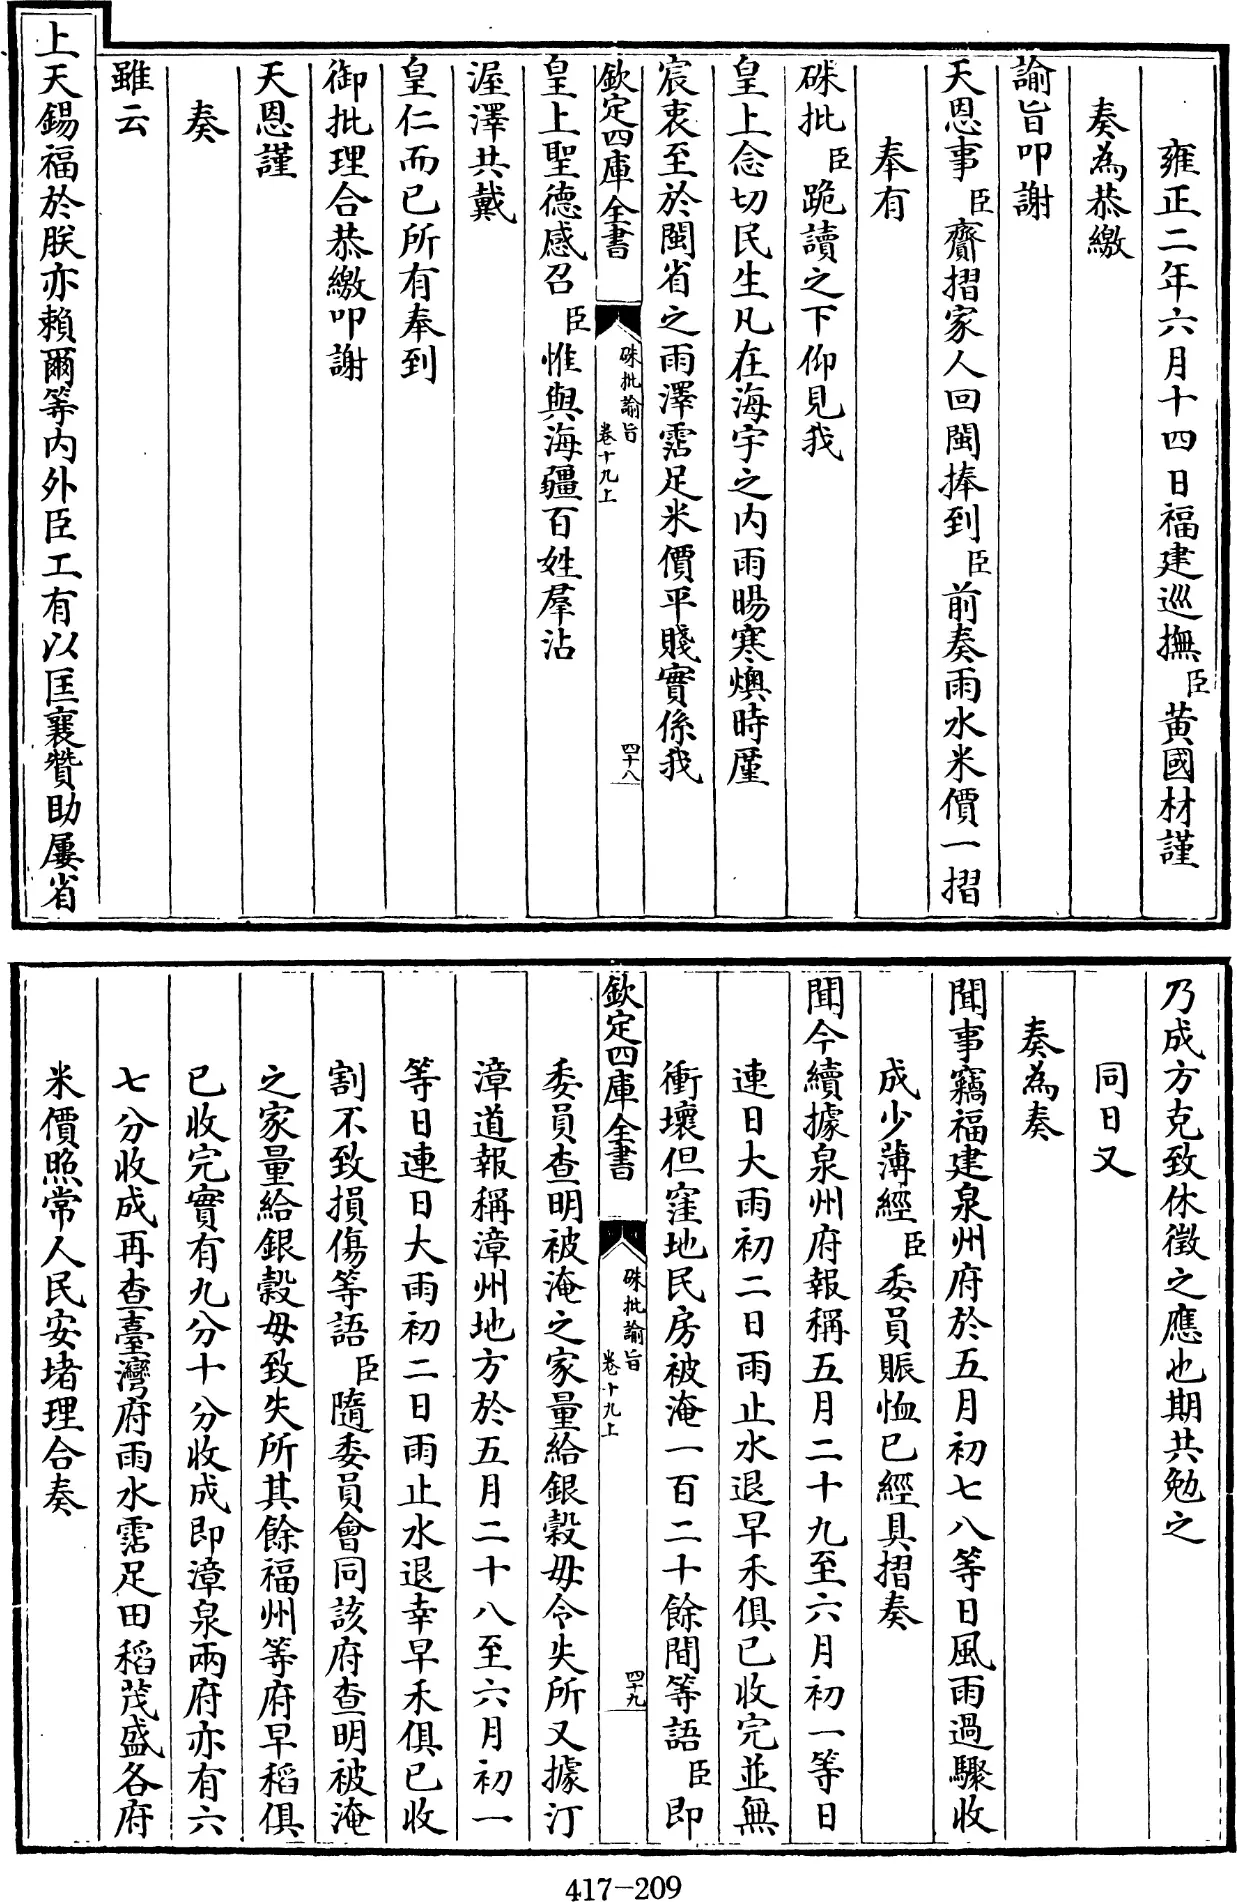 雍正二年六月十四日福建巡撫臣黃國材謹
奏為恭繳
諭旨叩謝
天恩事臣齎摺家人回閩捧到臣前奏雨水米價一摺
奉有
硃批臣跪讀之下仰見我
皇上念切民生凡在海宇之內雨暘寒燠時厪
宸衷至於閩省之雨澤霑足米價平賤實係我
欽定四庫全書
硃批諭旨
卷十九上
四十八
皇上聖德感召臣惟與海疆百姓羣沾
渥澤共戴
皇仁而已所有奉到
御批理合恭繳叩謝
天恩謹
奏
雖云
上天錫福於朕亦賴爾等內外臣工有以匡襄贊助屢省
乃成方克致休徵之應也期共勉之
同日又
奏為奏
聞事竊福建泉州府於五月初七八等日風雨過驟收
成少薄經臣委員賑恤已經具摺奏
聞今續據泉州府報稱五月二十九至六月初一等日
連日大雨初二日雨止水退早禾俱已收完並無
衝壞但窪地民房被淹一百二十餘間等語臣即
欽定四庫全書
硃批諭旨
卷十九上
四十九
委員查明被淹之家量給銀穀毋令失所又據汀
漳道報稱漳州地方於五月二十八至六月初一
等日連日大雨初二日雨止水退幸早禾俱已收
割不致損傷等語臣隨委員會同該府查明被淹
之家量給銀穀毋致失所其餘福州等府早稻俱
已收完實有九分十分收成即漳泉兩府亦有六
七分收成再查臺灣府雨水霑足田稻茂盛各府
米價照常人民安堵理合奏
417-209